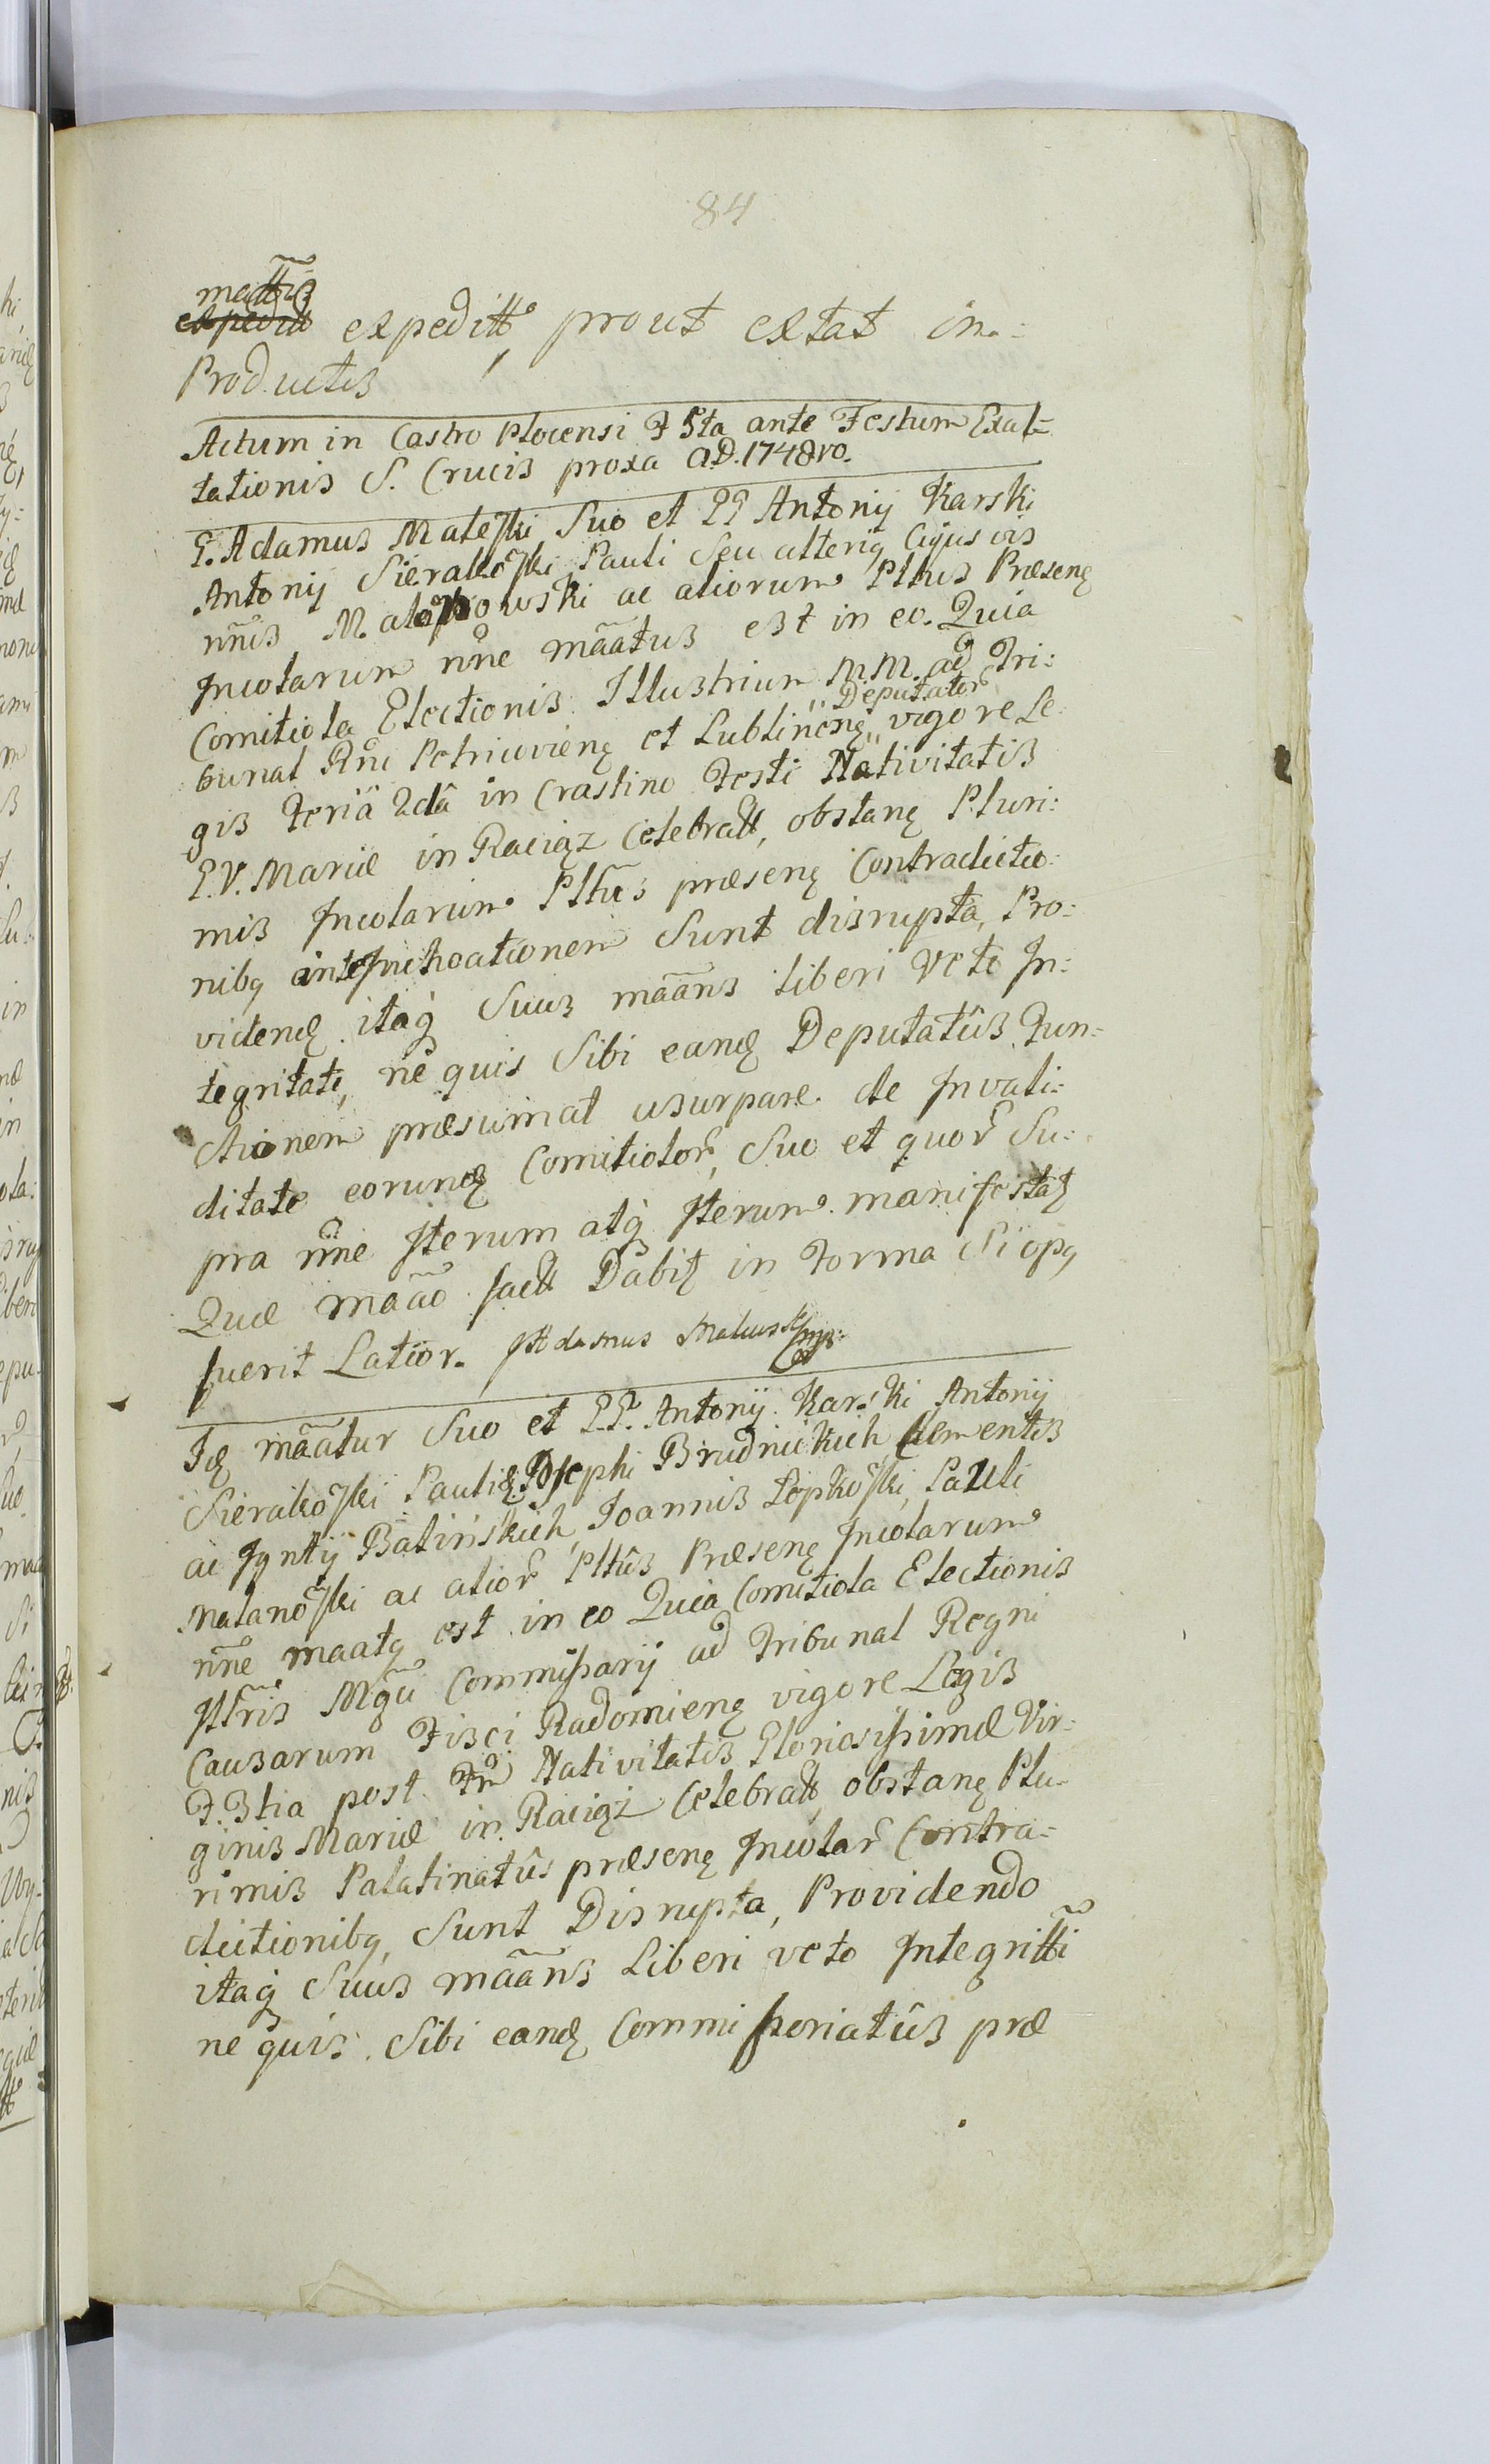 84
mattis
expeditt expeditt, prout extat in:
Productis
Actum in Castro Plocensi F 5ta ante Festum Exal-
tationis S. Crucis proxa A.D. 1748vo.
G. Adamus Malewski Suo et GG Antonij Karski
Antonij Sierakowski Pauli Seu alteriq Cujusvis
nnis ac aliorum Pltus Præsenę
Incolarum nne mãatus est in eo. Quia
Comitiola Electionis Illustrium MM. ad Tri:
Deputator
bunal Rni Petricovienę et Lublinenę vigore Le
gis Feriâ 2dâ in Crastino Festi Nativitatis
B.V. Mariæ in Raciąz Celebratt, obstanę Pluri:
mis Incolarum Pltûs præsenę Contradictio:
nibq ante Inchoationem Sunt disrupta, Pro:
videndę itaq Suus mãans liberi Veto In:
tegritati, nê quis Sibi eandę Deputatûs Fun:
ctionem præsumat usurpare de Invali:
ditate eorundę Comitiolor, Suo et quor Su:
pra nne Iterum atq Iterum manifestatę
Quæ mãao fact Dabitę in Forma Si opq
fuerit Latior.
Idę mãatur Suo et GG. Antonij Karski Antonij
Sierakowski Pauli & Josephi Brudnickich Clementis
ac Igntij Balińskich, Joannis Łępkowski, Pauli
Malanowski ac alior Pltûs Præsenę Incolarum
nne maatq est in eo Quia Comitiola Electionis
Illris Mgci Commissarij ad Tribunal Regni
Causarum Fisci Radomienę vigore Legis
F. 3tia post Fm Nativitatis Gloriosissimæ Vir:
ginis Mariæ in Raciąz Celebratt obstanę Plu-
rimis Palatinatûs præsenę Incolar Contra:
dictionibq, Sunt Disrupta, Providendo
itaq Suus mãans Liberi veto Integritti
ne quis Sibi eandę Commissoriatûs præ